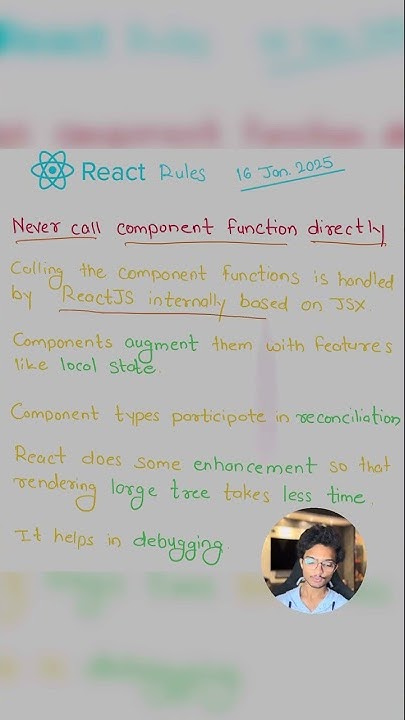 React Rules 16 Jan. 2025
Never call component function directly
Calling the component functions is handled
by ReactJS internally based on JSX.
Components augment them with features
like local state.
Component types participate in reconciliation
React does some enhancement so that
rendering large tree takes less time.
It helps in debugging.